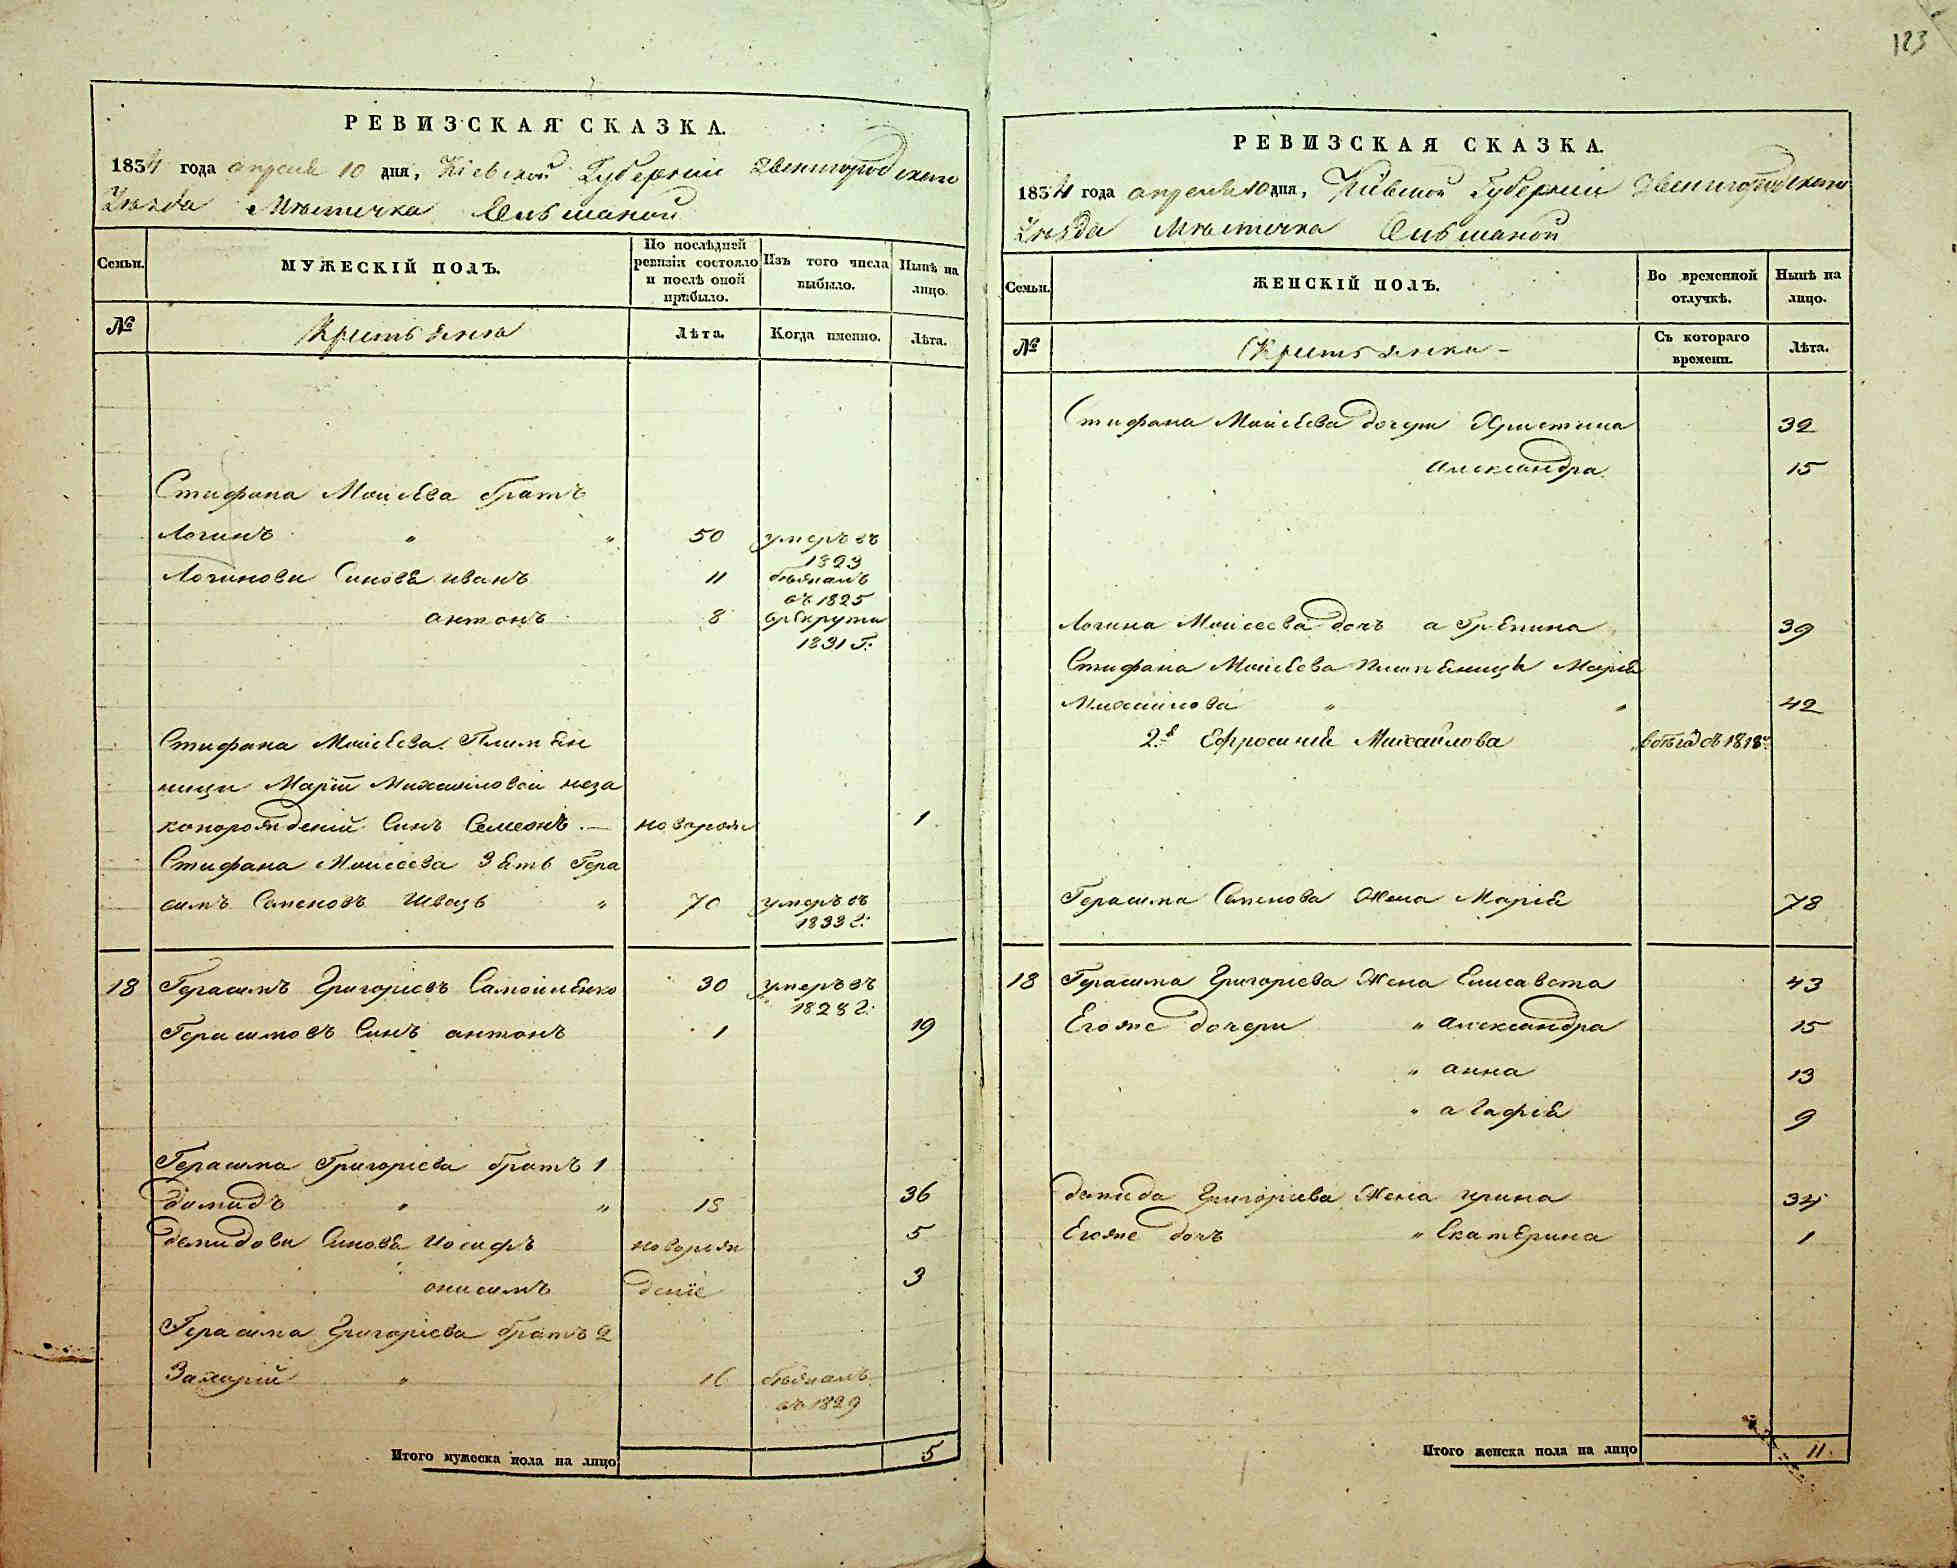 123
РЕВИЗСКАЯ СКАЗКА.
1834 года апреля 10 дня, Кіевской Губерніи Звенигородского
Уезда Местечка Ольшаной
Семьи.
МУЖЕСКІЙ ПОЛЪ.
По послѣдней ревизіи состояло и послѣ оной прибыло.
Изъ того числа выбыло.
Нынѣ на лицо.
№
Крестьяне
Лѣта.
Когда именно.
Лѣта.
Стифана Моисѣева братъ
Логинъ " " 50 умеръ въ 1823
Логинови Синовѣ иванъ 11 бѣжалъ въ 1825
антонъ 8 врекрути 1831 Г:
Стифана Моисѣева Племѣн
ници Маріи Михайловой неза
конорожденій Синъ Семеонъ — новорож 1
Стифана Моисеева Зять Гера
симъ Семеновъ Швецъ " 70 умеръ въ 1833 г:
18 Герасимъ Григоріевъ Самойлѣнко 30 умеръ въ 1828 г:
Герасимовъ Синъ антонъ 1 19
Герасима Григоріева братъ 1
Демидъ " " 18 36
Демидови Синовѣ Иосифъ новорож 5
онисимъ деніе 3
Герасима Григоріева братъ 2
Захарій " 16 бѣжалъ въ 1829
Итого мужеска пола на лицо 5
РЕВИЗСКАЯ СКАЗКА.
1834 года апреля 10 дня, Кіевской Губерніи Звенигородского
Уезда Местечка Ольшаной
Семьи.
ЖЕНСКІЙ ПОЛЪ.
Во временной отлучкѣ.
Нынѣ на лицо.
№
Крестьянки -
Съ котораго времени.
Лѣта.
Стифана Моисѣева дочери Христина 32
Александра 15
Логина Моисеева дочъ агрѣпина 39
Стифана Моисѣева племѣница Марія
Михайлова " " 42
2.я Ефросинія Михайлова въ бѣгах съ 1818
Герасима Семенова Жена Марія 78
18 Герасима Григоріева Жена Елисавета 43
Егоже дочери " Александра 15
" анна 13
" агафія 9
демида Григоріева Жена ирина 34
Егоже дочъ " Екатерина 1
Итого женска пола на лицо 11.